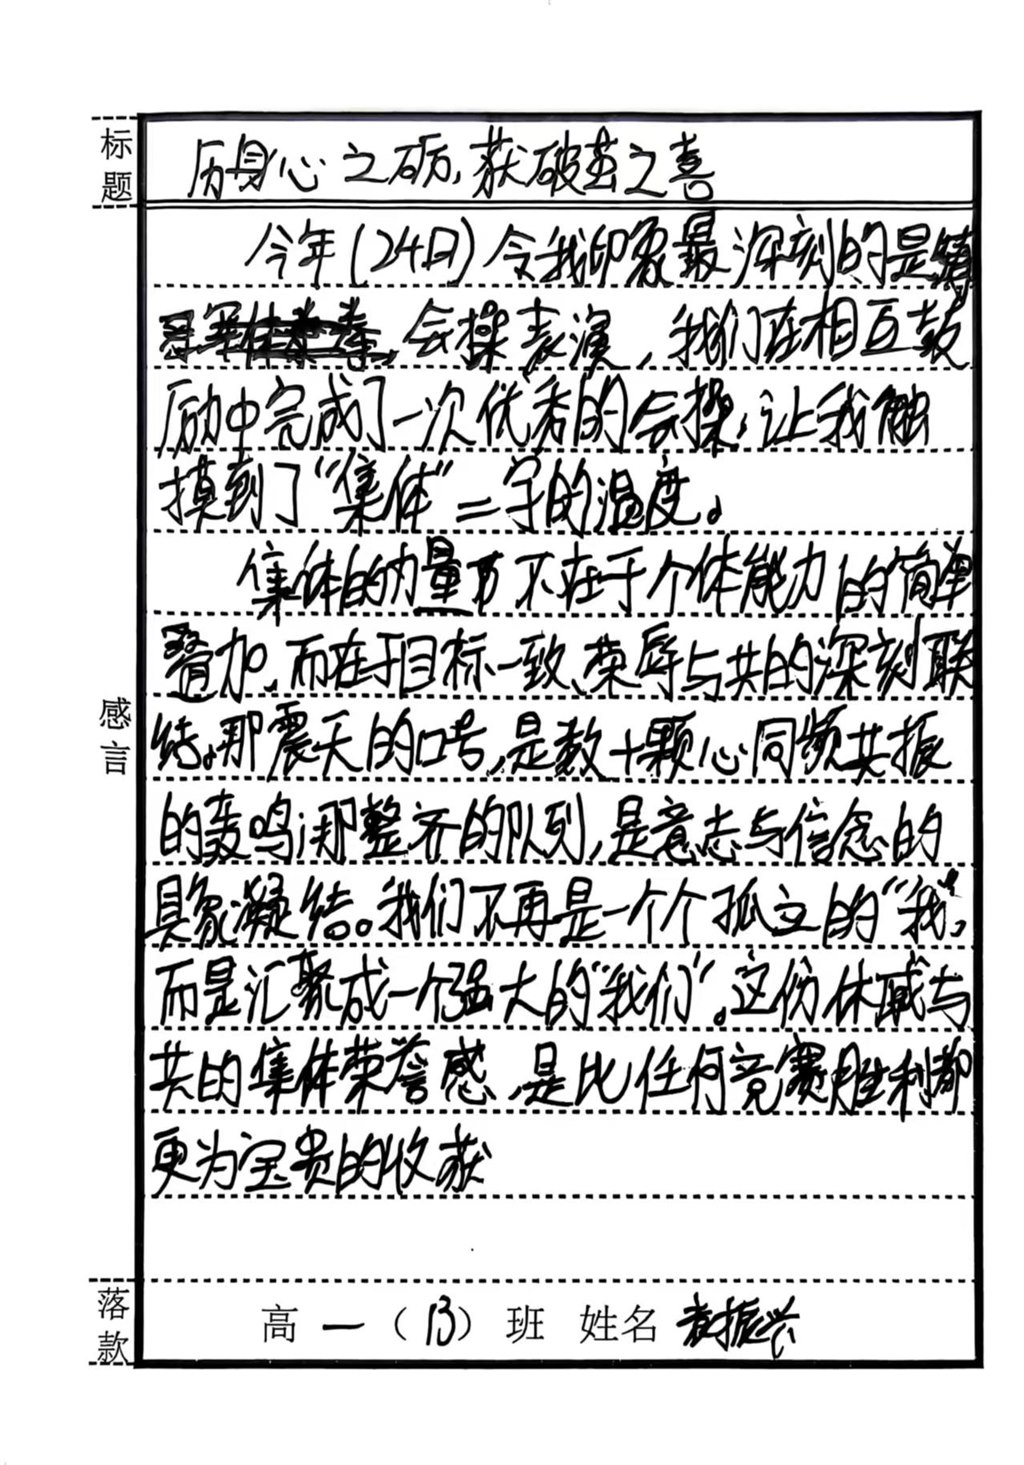 标题
历身心之砺,获破茧之喜
今年(24日)令我印象最深刻的是
会操表演,我们在相互鼓
励中完成了一次优秀的会操,让我触
摸到了“集体”二字的温度。
集体的力量 不在于个体能力的简单
叠加,而在于目标一致、荣辱与共的深刻联
结。那震天的口号,是数十颗心同频共振
的轰鸣;那整齐的队列,是意志与信念的
具象凝结。我们不再是一个个孤立的“我”,
而是汇聚成一个强大的“我们”。这份休戚与
共的集体荣誉感,是比任何竞赛胜利都
更为宝贵的收获
感言
落款
高一(13)班 姓名 袁振兴